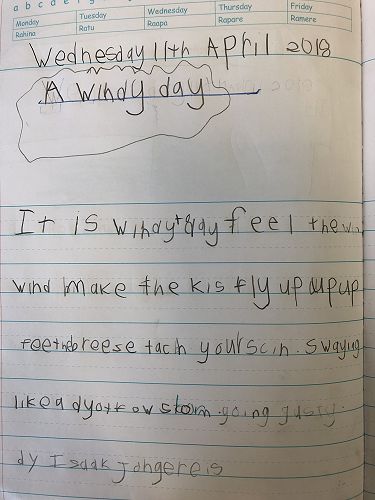 a b c d e f g
Monday Tuesday Wednesday Thursday Friday
Rahina Ratu Raapa Rapare Ramere
Wednesday 11th April 2018
A windy day
It is windy today feel the win
wind make the kis fly up up up
feethe breese tach your scin. swaying
like a storm. going gusty.
dy Isaak Jongereis